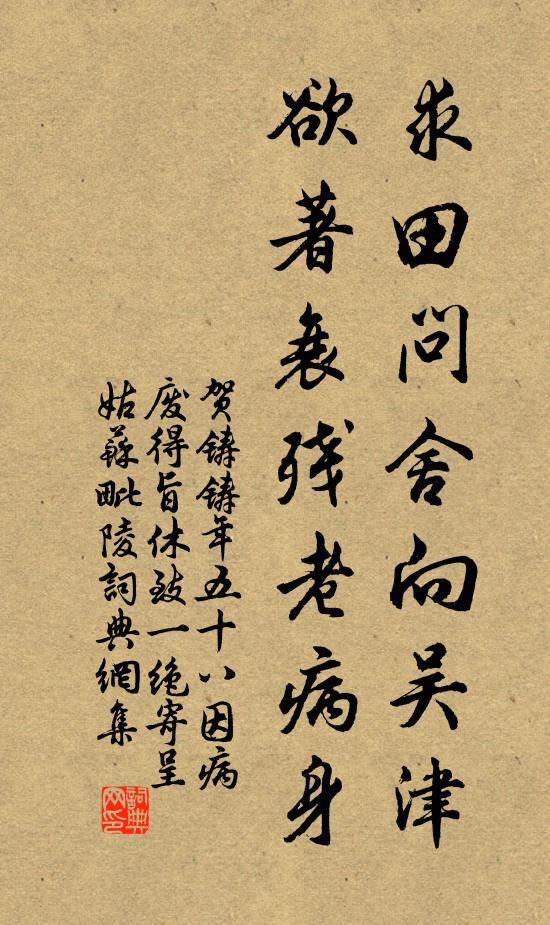 求田問舍向吴津
欲著衰残老病身
贺鑄鑄年五十八因病
废得旨休致一绝寄呈
姑蘇毗陵詞典網集
詞典网印